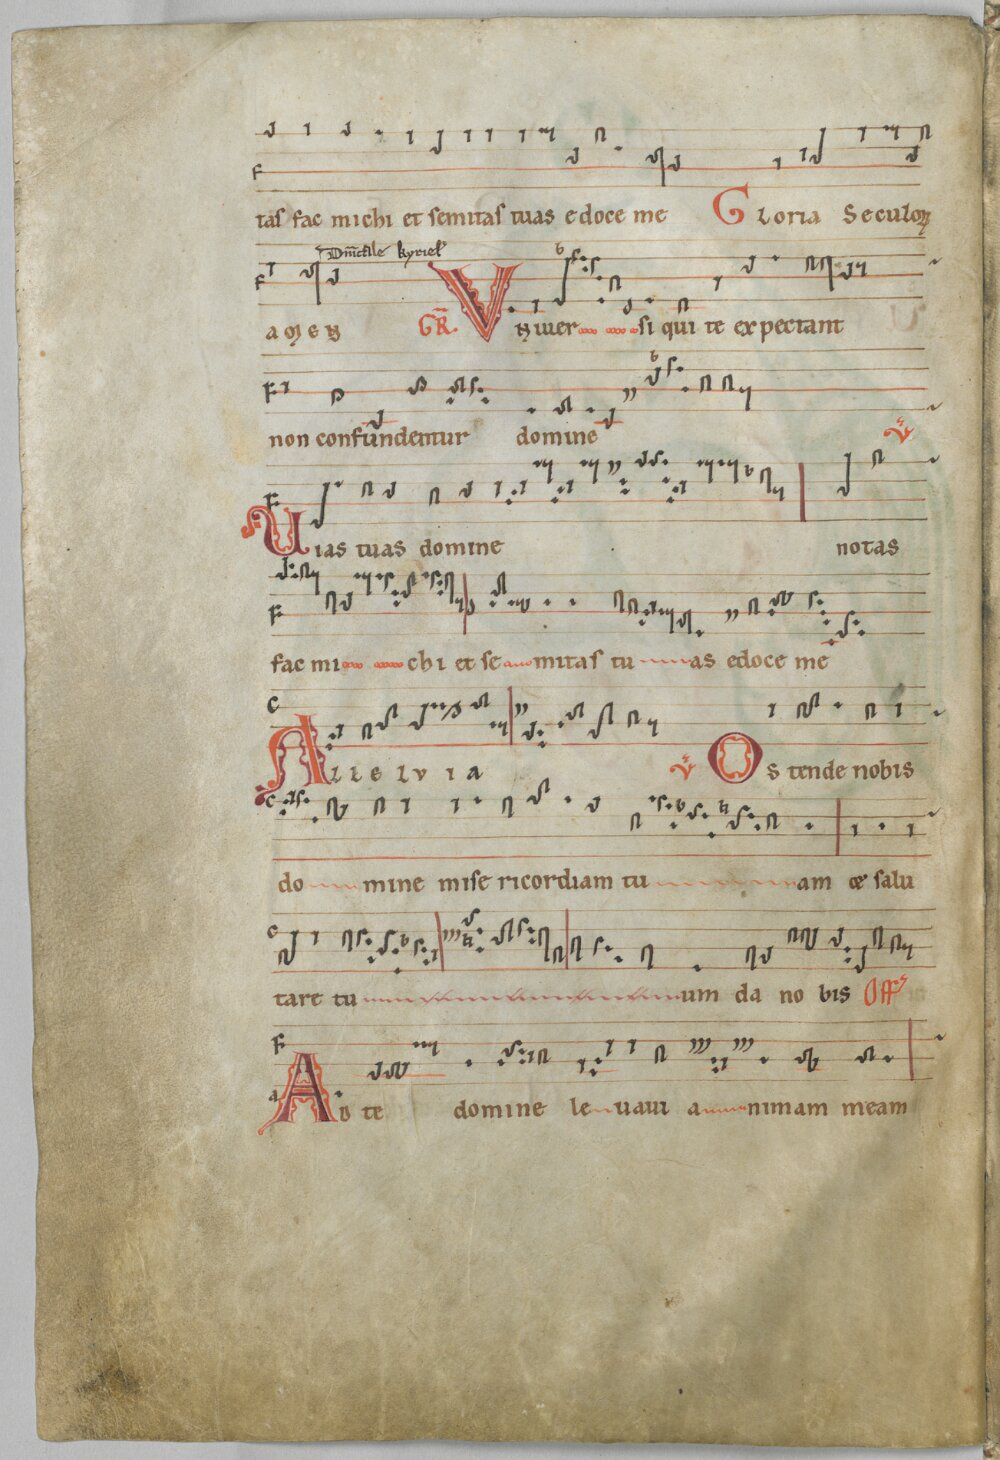 tas fac michi et semitas tuas edoce me Gloria Seculoꝝ
Dn̄icale kyriel'
amen GR̄. Vniuer si qui te expectant
non confundentur domine ℣
Uias tuas domine notas
fac mi chi et se mitas tu as edoce me
Allelvia ℣ Ostende nobis
do mine mise ricordiam tu am & salu
tare tu um da no bis Off
Ad te domine le uaui a nimam meam